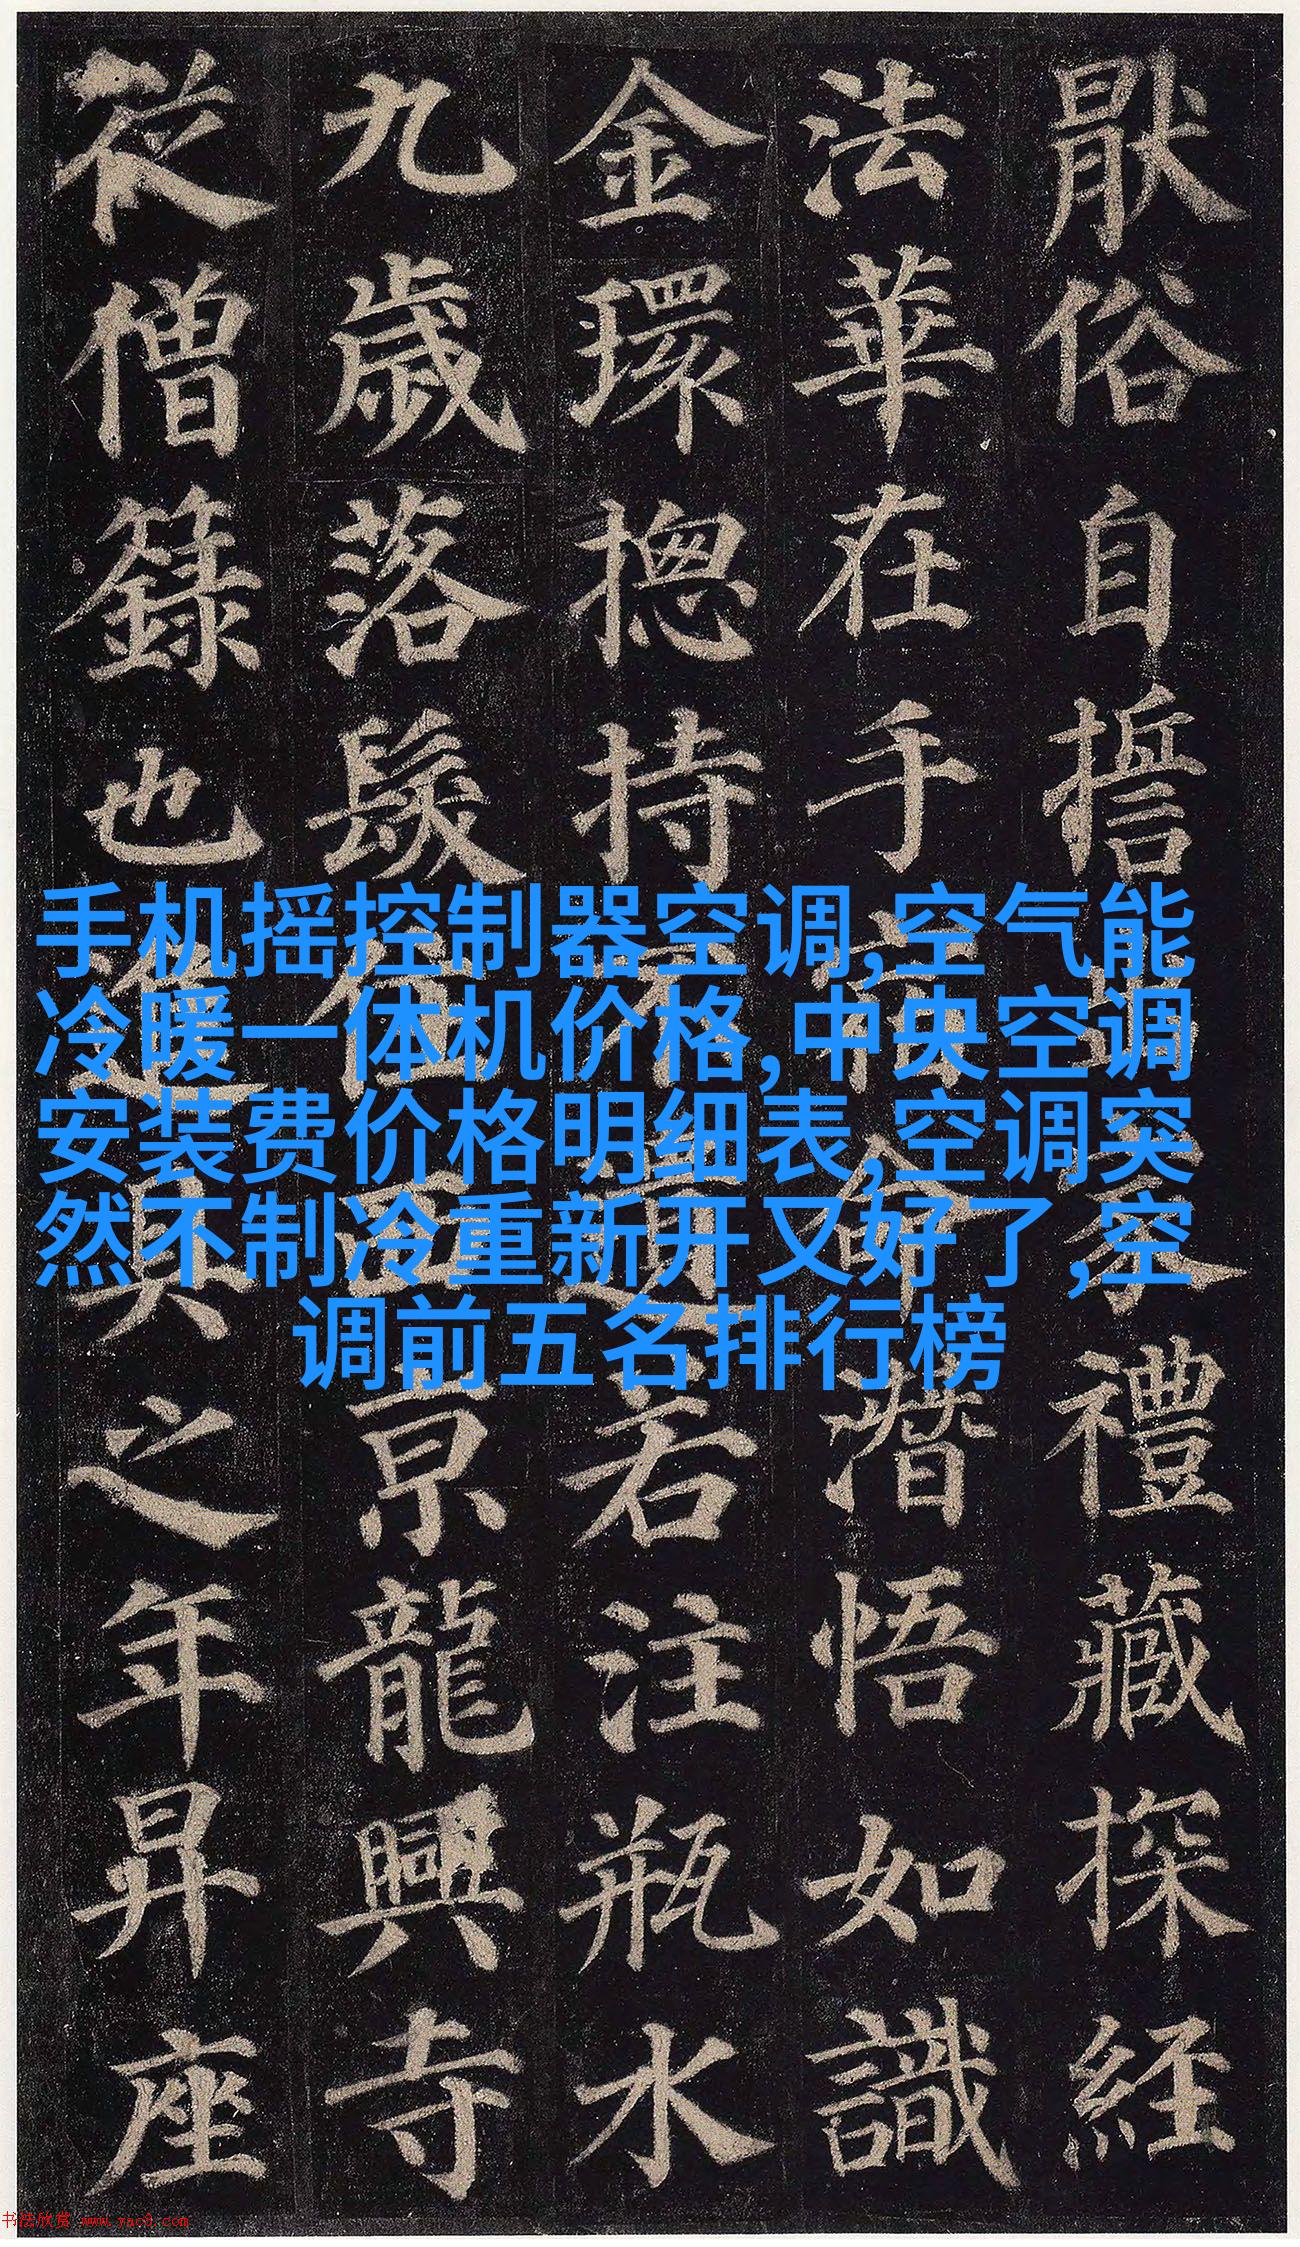 猒俗自誓出家禮藏探經
法華在手宿命潛悟如識
金環揔持不遺若注瓶水
九歲落髮住西京龍興寺
從僧籙也進具之年昇座
手机摇控制器空调,空气能
冷暖一体机价格,中央空调
安装费价格明细表,空调突
然不制冷重新开又好了,空
调前五名排行榜
书法欣赏 www.yac8.com